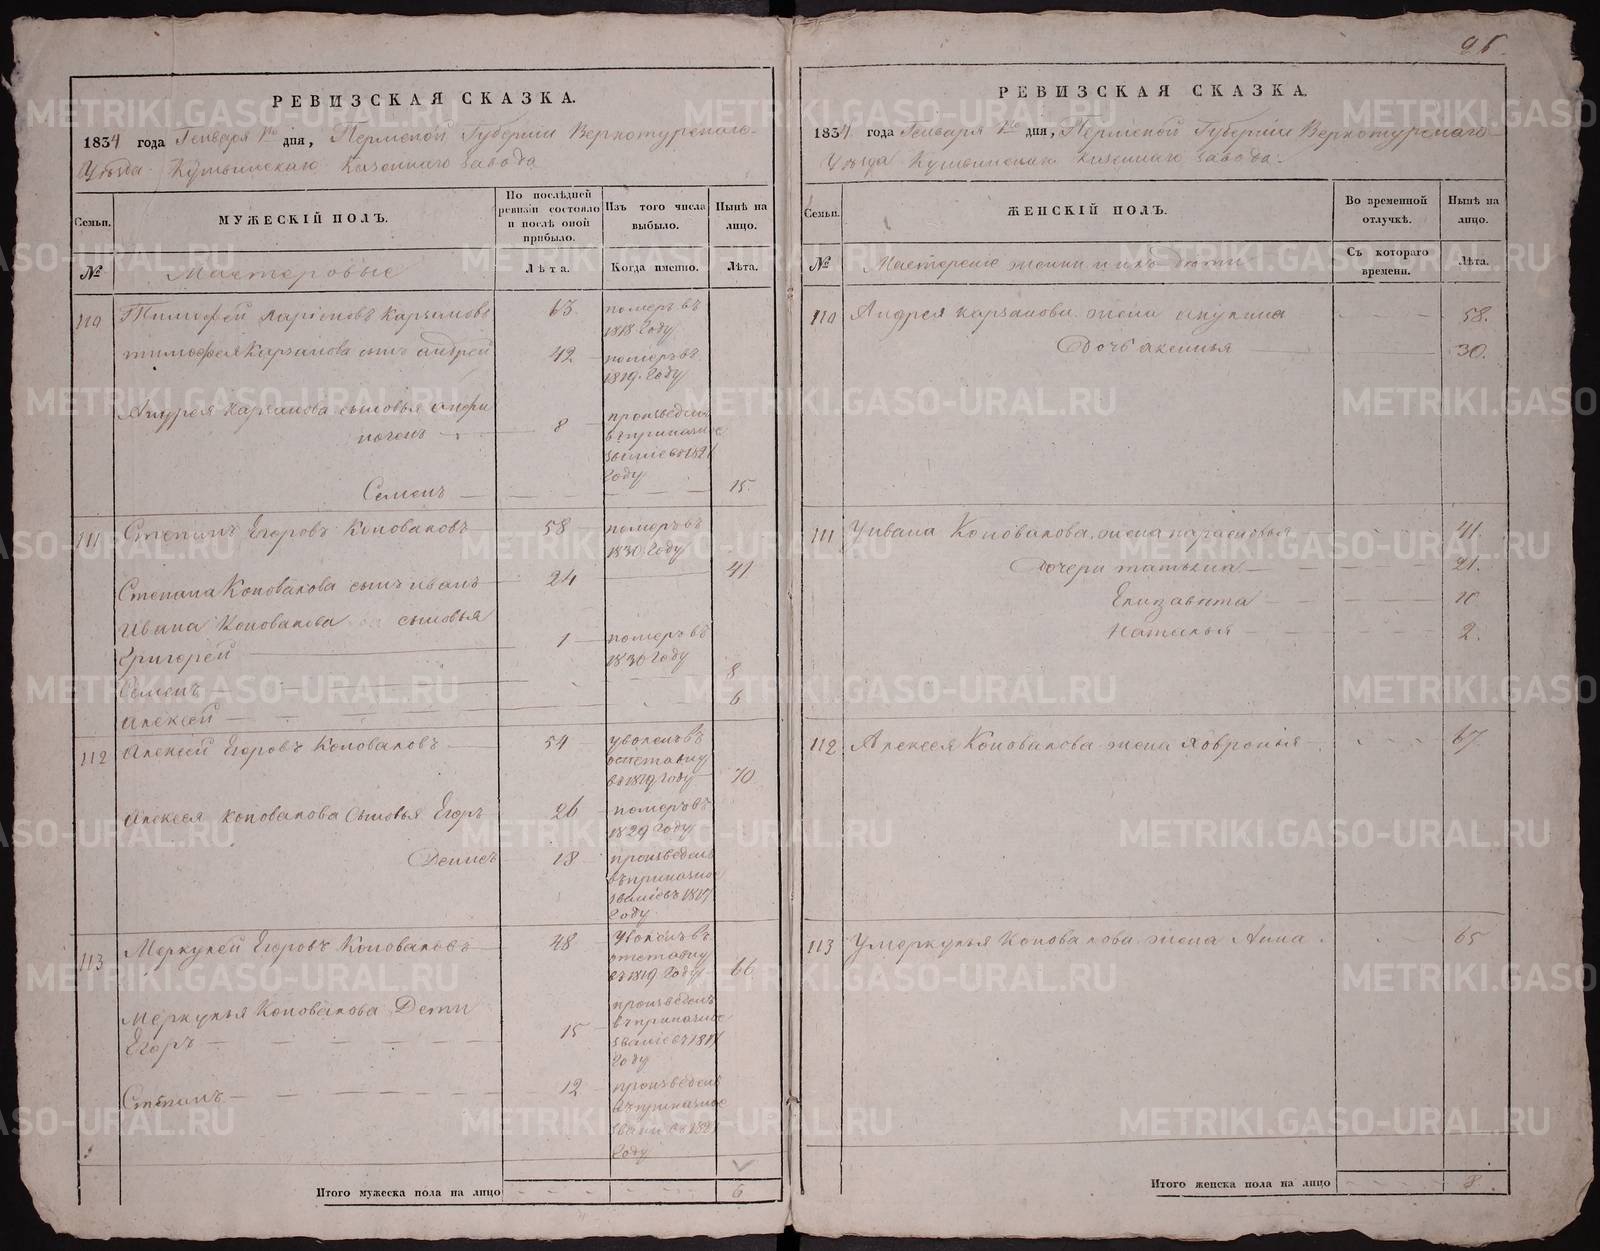 25.
РЕВИЗСКАЯ СКАЗКА.
1834 года Генваря дня, Пермской Губернии Верхотурскаго
Уѣзда Кушвинскаго Казеннаго завода
Семьи.
МУЖЕСКІЙ ПОЛЪ.
По послѣдней ревизіи состояло и послѣ оной прибыло.
Изъ того числа выбыло.
Нынѣ на лицо.
№
Мастеровые
Лѣта.
Когда именно.
Лѣта.
110 Тимофей Ларіоновъ 63 померъ въ
1818 Году
Тимофея сынъ андрей 42 померъ въ
1819 Году
Андрея сыновья
8 произведенъ
въ приказное
званіе въ
Году
Семенъ 15
111 Степанъ Егоровъ Коноваловъ 58 померъ въ
1830 Году
Степана Коновалова сынъ иванъ 24 41
Ивана Коновалова сыновья
Григорей 1 померъ въ
1830 Году
Семенъ 8
Алексѣй 6
112 Алексѣй Егоровъ Коноваловъ 54 уволенъ въ
отставку
въ 1819 Году 70
Алексея Коновалова Сыновья Егоръ 26 померъ въ
1829 Году
Денисъ 18 произведенъ
въ приказное
званіе въ 1817
Году
113 Меркулей Егоровъ Коноваловъ 48 Уволенъ въ
отставку
въ 1819 Году 66
Меркулья Коновалова Дети
Егоръ 15 произведенъ
въ приказное
званіе въ 1817
Году
Степанъ 12 произведенъ
въ приказное
званіе въ
Году
Итого мужеска пола на лицо 6
РЕВИЗСКАЯ СКАЗКА.
1834 года Генваря дня, Пермской Губернии Верхотурскаго
Уѣзда Кушвинскаго Казеннаго завода.
Семьи.
ЖЕНСКІЙ ПОЛЪ.
Во временной отлучкѣ.
Нынѣ на лицо.
№
жены и ихъ дети
Съ котораго времени.
Лѣта.
110 Андрея жена акулина 58.
Дочь аксинья 30.
111 У ивана Коновалова жена парасковья 41.
Дочери татьяна 21.
Елизавѣта
Наталья 2.
112 Алексея Коновалова жена Ховронья 67
113 У меркулья Коновалова жена Анна 65
Итого женска пола на лицо 8.
METRIKI.GASO-URAL.RU